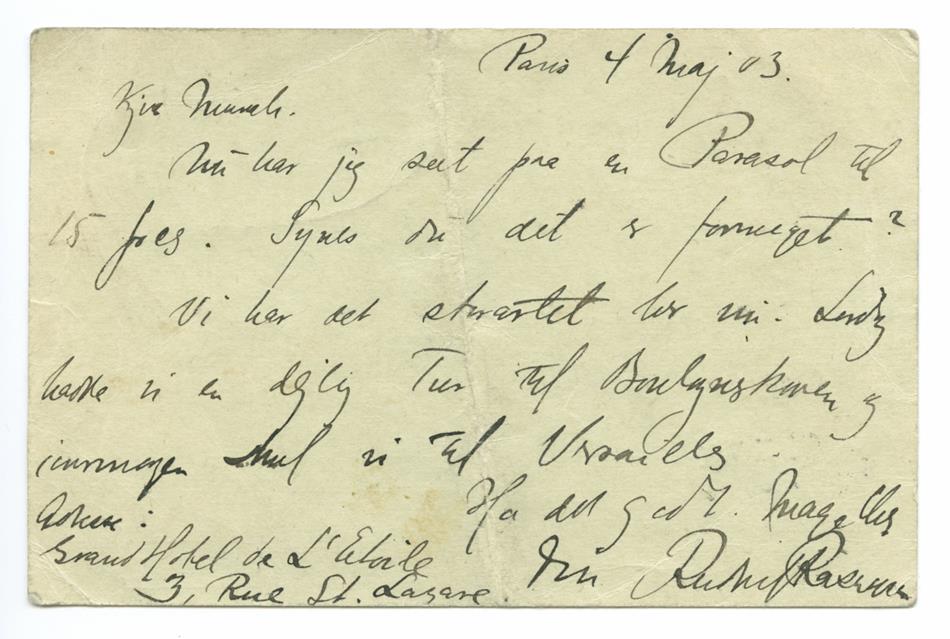 Paris 4 Maj 03.
Kjære Munch.
Nu har jeg seet paa en Parasol til
15 frcs. Synes du det er formeget?
Vi har det storartet her nu. Lørdag
hadde vi en dejlig Tur til Boulogneskoven og
imorgen skal vi til Versailles.
Ha det godt. Mange
Adresse:
Grand Hotel de L'Etoile
3, Rue St. Lazare
Din Rudolf Rasmussen